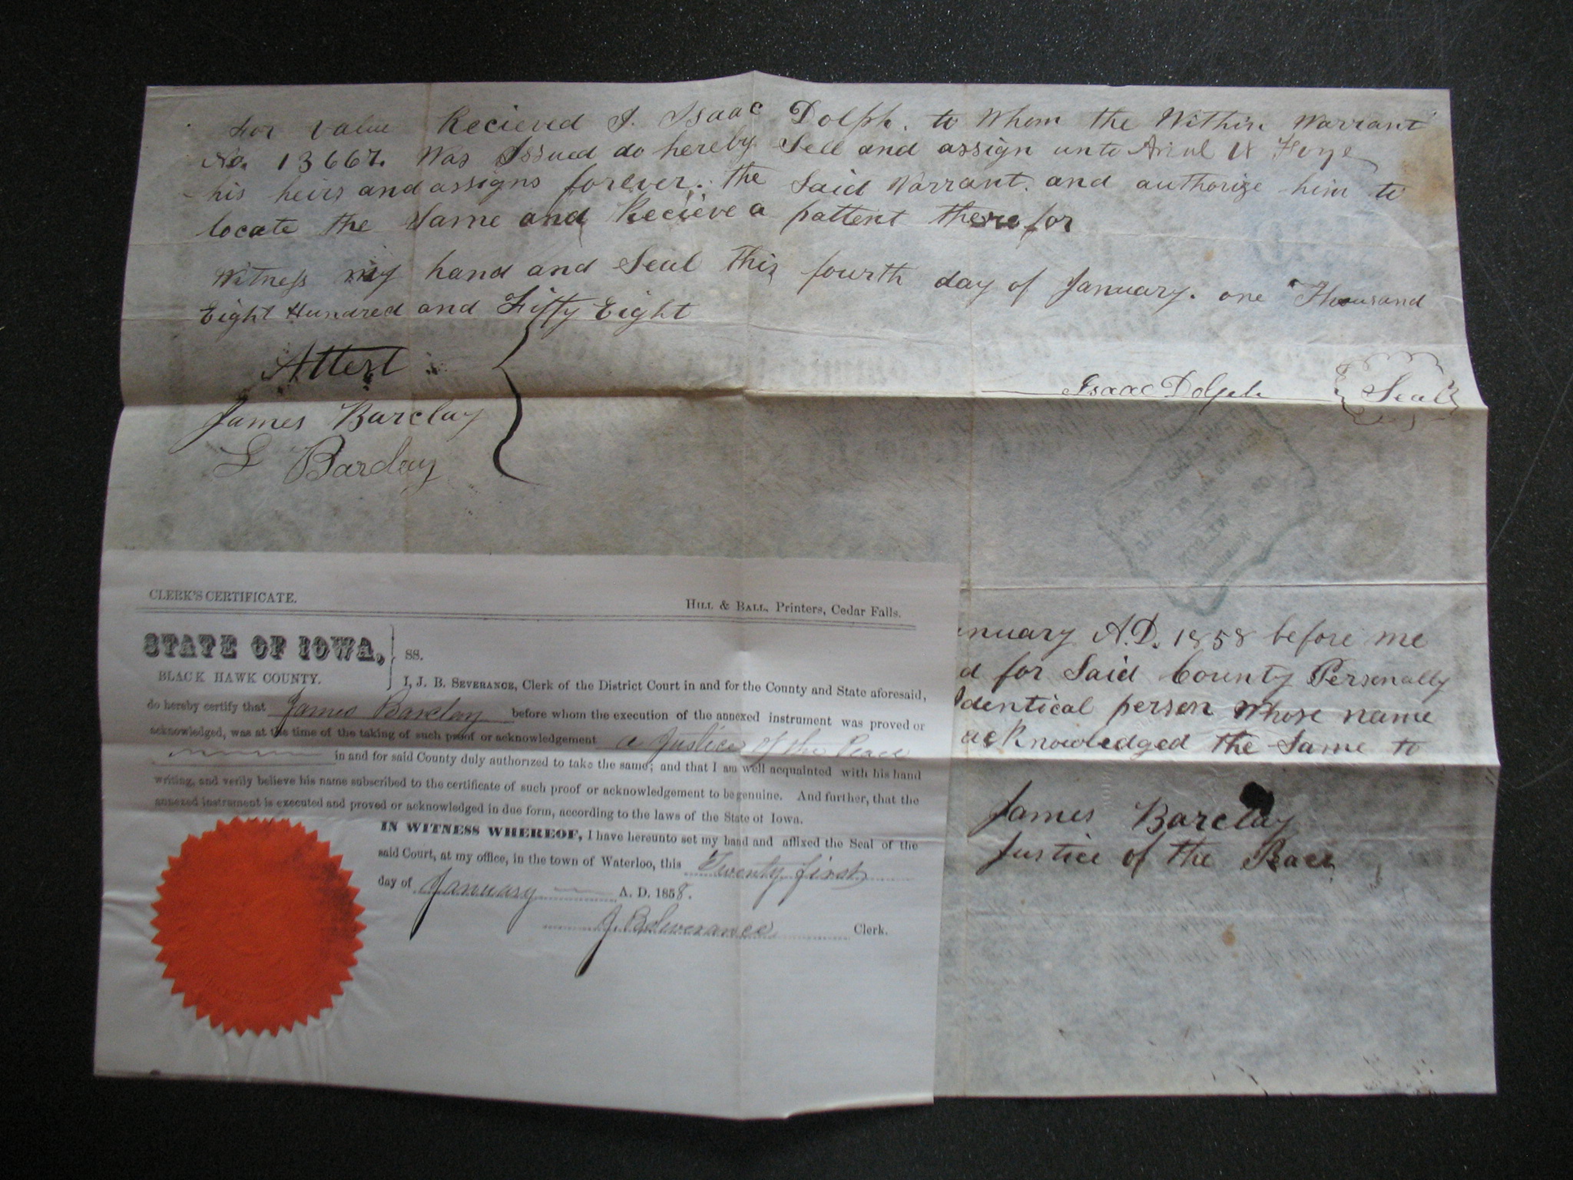 For value Recieved I. Isaac Dolph. to Whom the Within Warrant
No. 13667. Was Issued do hereby Sell and assign unto
his heirs and assigns forever. the Said Warrant. and authorize him to
locate the Same and Recieve a pattent therefor
Witness my hand and Seal this fourth day of January. one Thousand
Eight Hundred and Fifty Eight
Attest
Isaac Dolph Seal
James Barclay
L Barclay
CLERK'S CERTIFICATE. HILL & BALL, Printers, Cedar Falls.
STATE OF IOWA, } ss.
BLACK HAWK COUNTY.
I, J. B. SEVERANCE, Clerk of the District Court in and for the County and State aforesaid,
do hereby certify that James Barclay before whom the execution of the annexed instrument was proved or
acknowledged, was at the time of the taking of such proof or acknowledgement a Justice of the Peace
in and for said County duly authorized to take the same; and that I am well acquainted with his hand
writing, and verily believe his name subscribed to the certificate of such proof or acknowledgement to be genuine. And further, that the
annexed instrument is executed and proved or acknowledged in due form, according to the laws of the State of Iowa.
IN WITNESS WHEREOF, I have hereunto set my hand and affixed the Seal of the
said Court, at my office, in the town of Waterloo, this Twenty first
day of January A. D. 1858.
J. B. Severance Clerk.
nuary A.D. 1858 before me
d for Said County Personally
dentical person whose name
acknowledged the Same to
James Barclay
Justice of the Peace